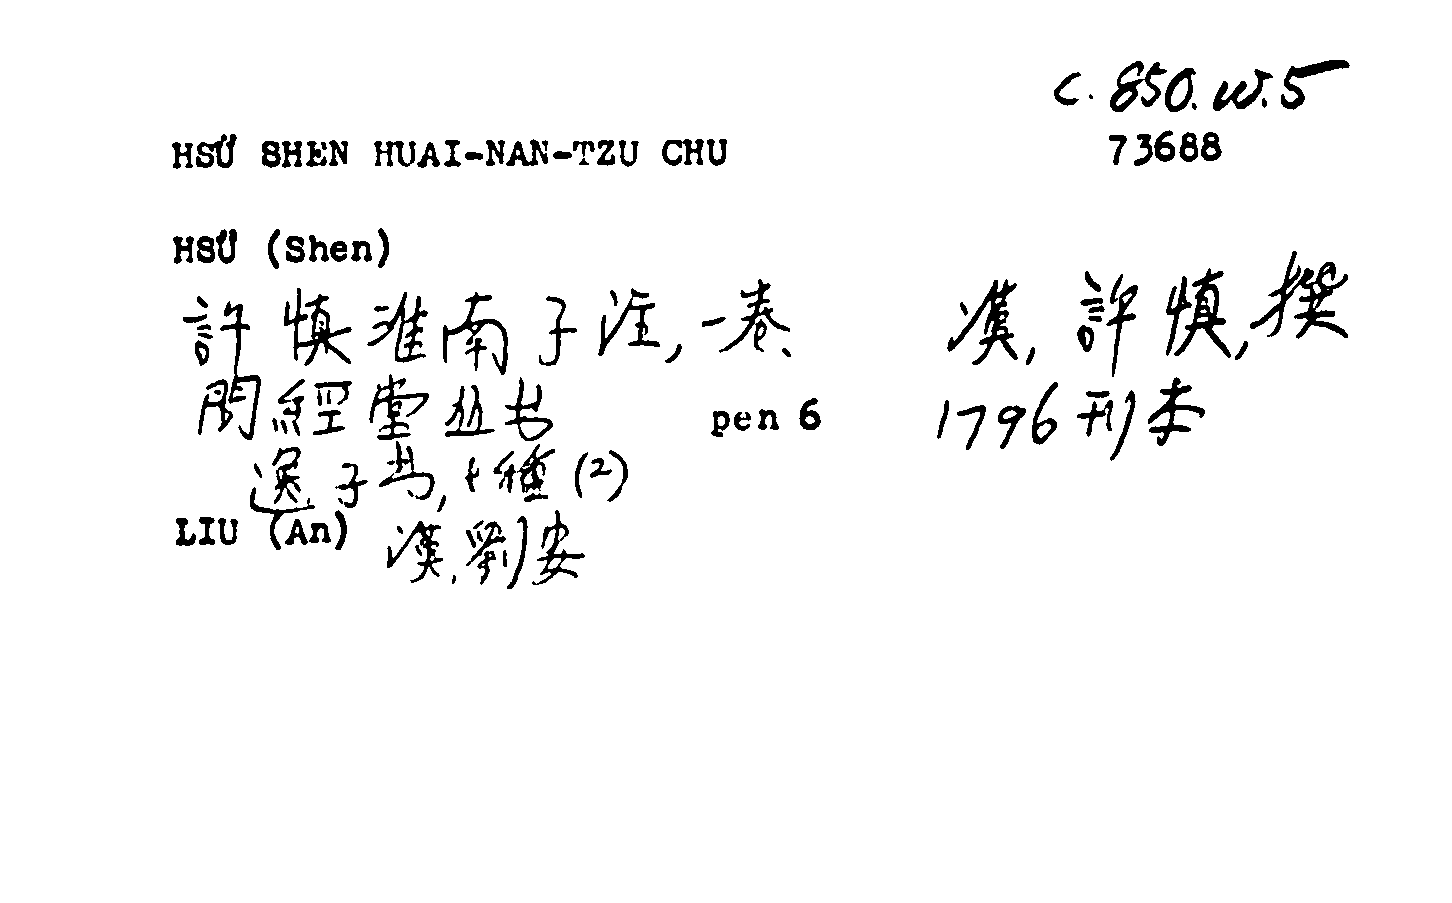 C. 850. W. 5
HSÜ SHEN HUAI-NAN-TZU CHU 73688
HSÜ (Shen)
許慎淮南子注, 一卷、 漢, 許慎, 撰
問經堂丛书 pen 6 1796 刊本
逸子书, 七種 (2)
LIU (An) 漢, 劉安